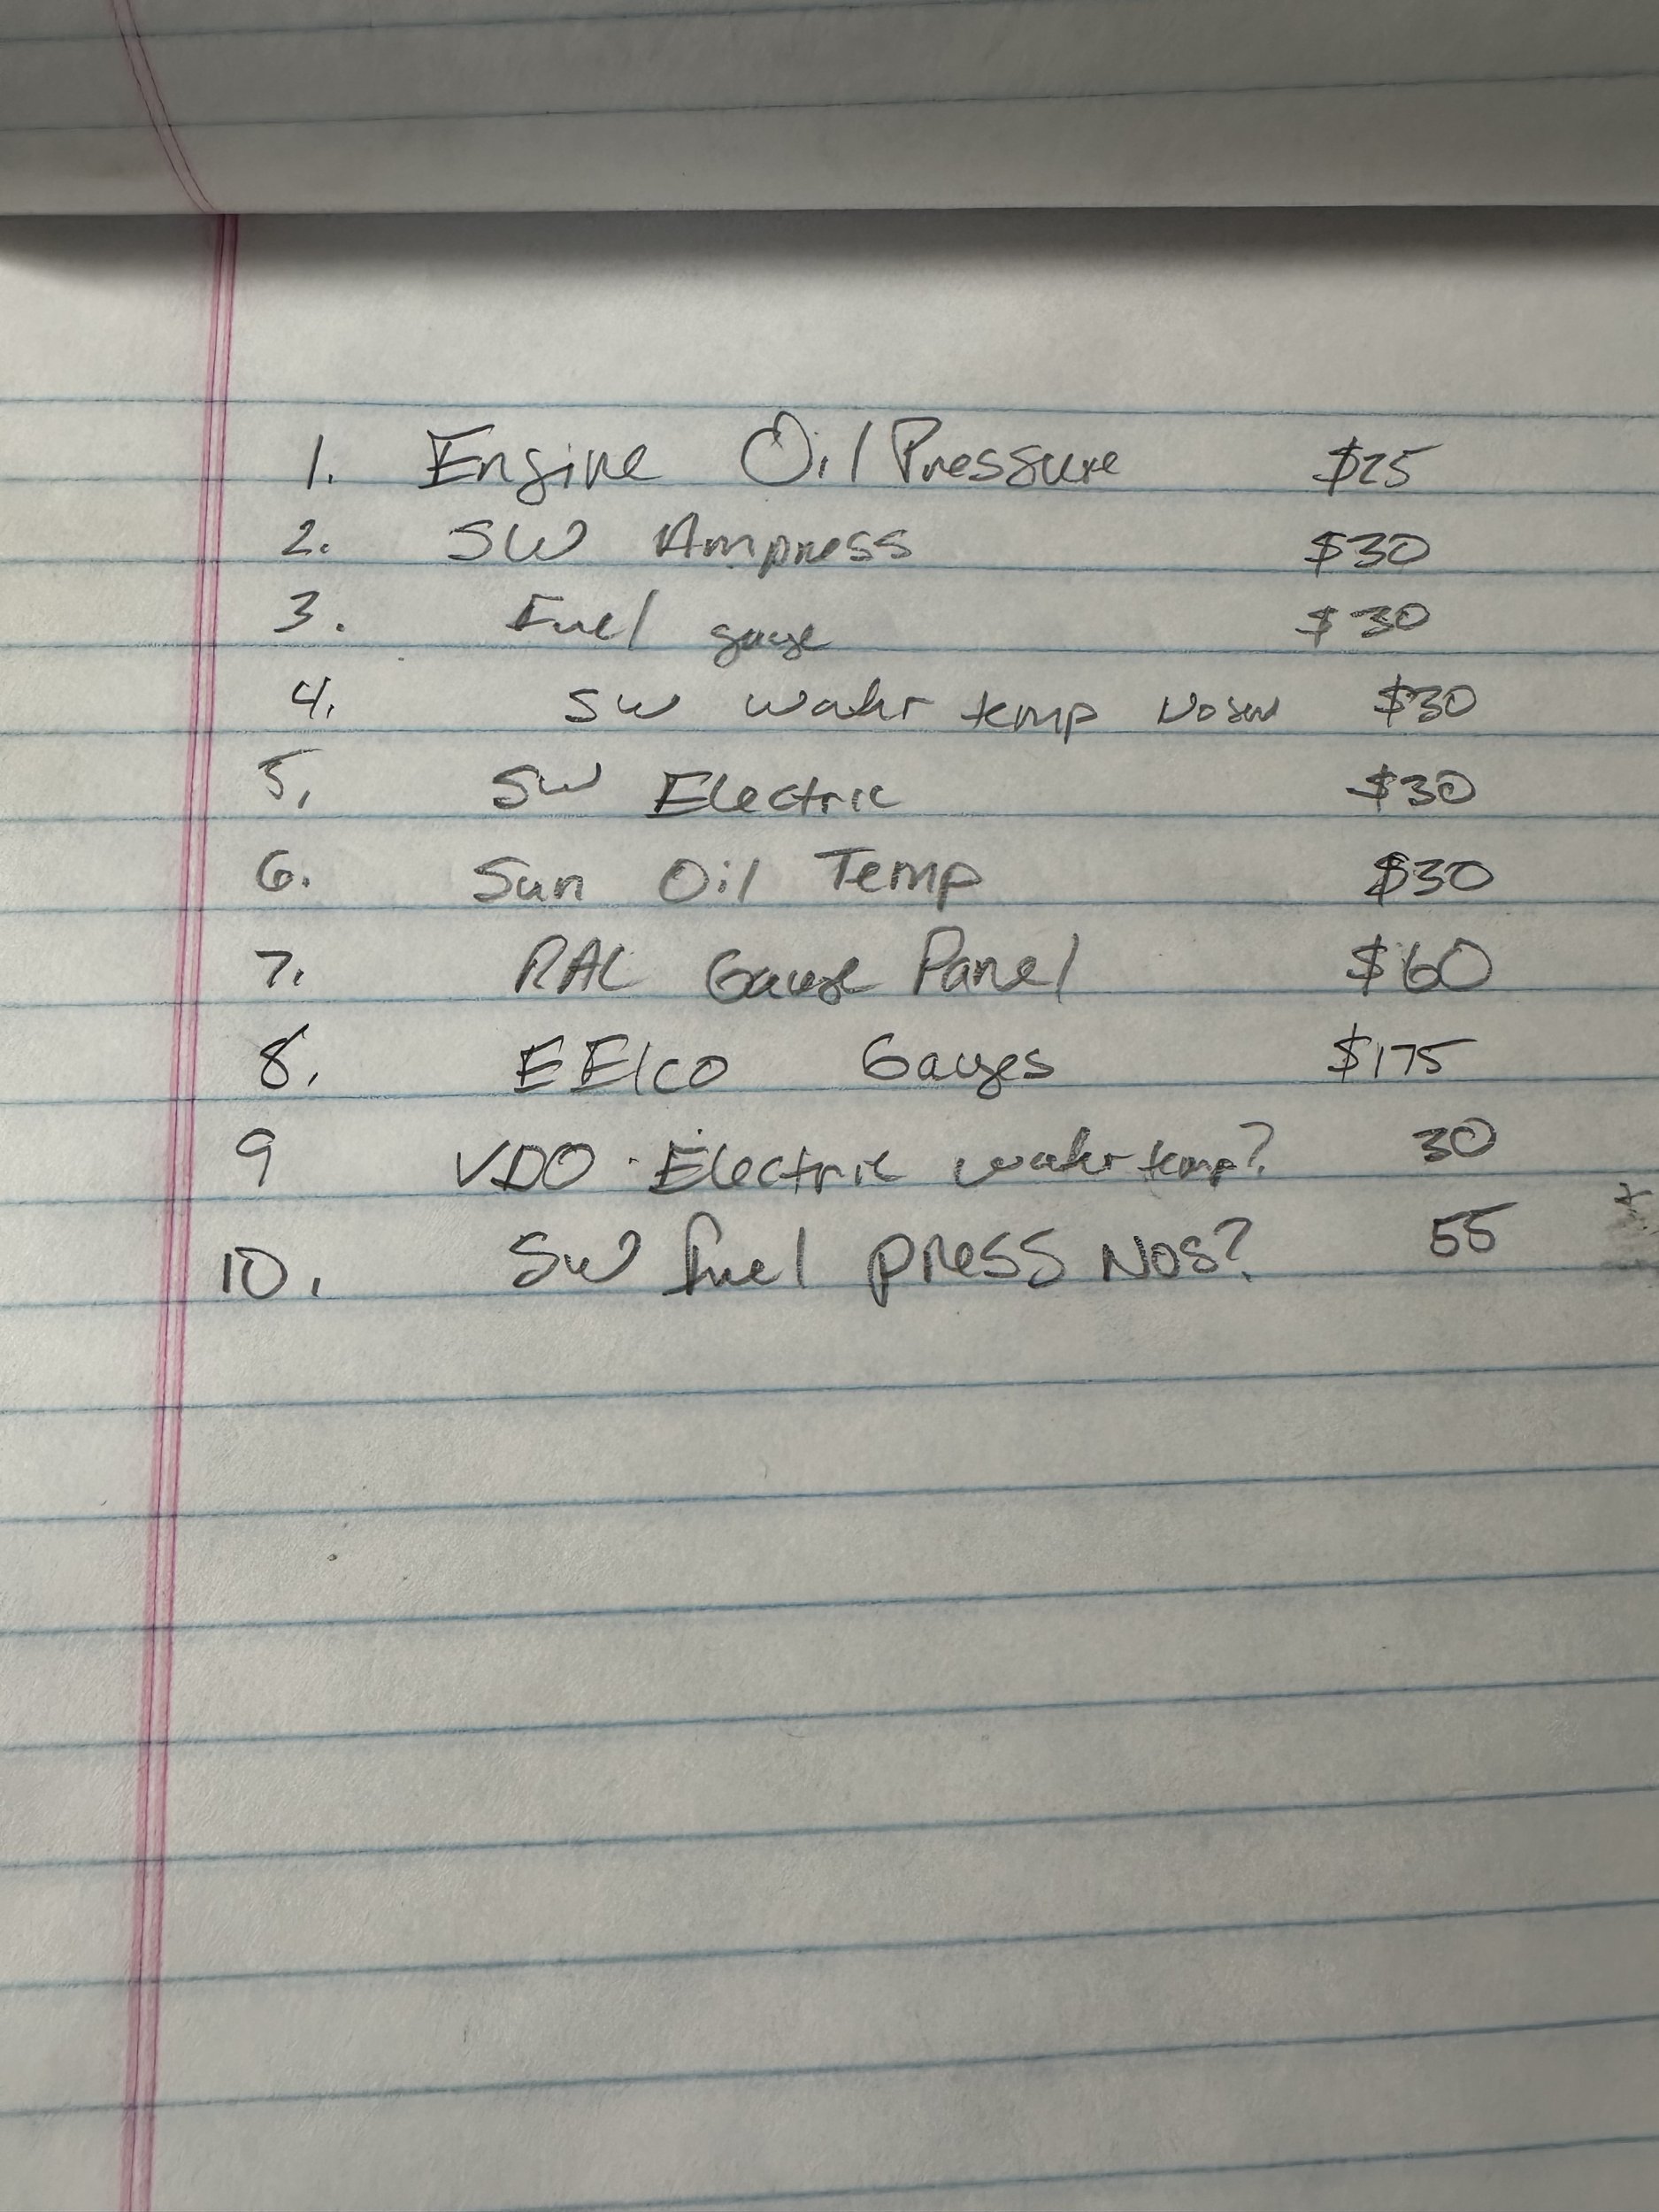 1. Engine Oil Pressure $25
2. SW Ampress $30
3. Fuel gauge $30
4. SW water temp No send $30
5. SW Electric $30
6. Sun Oil Temp $30
7. RAC Gauge Panel $60
8. EElco Gauges $175
9 VDO Electric water temp? 30
10. SW fuel press NOS? 55